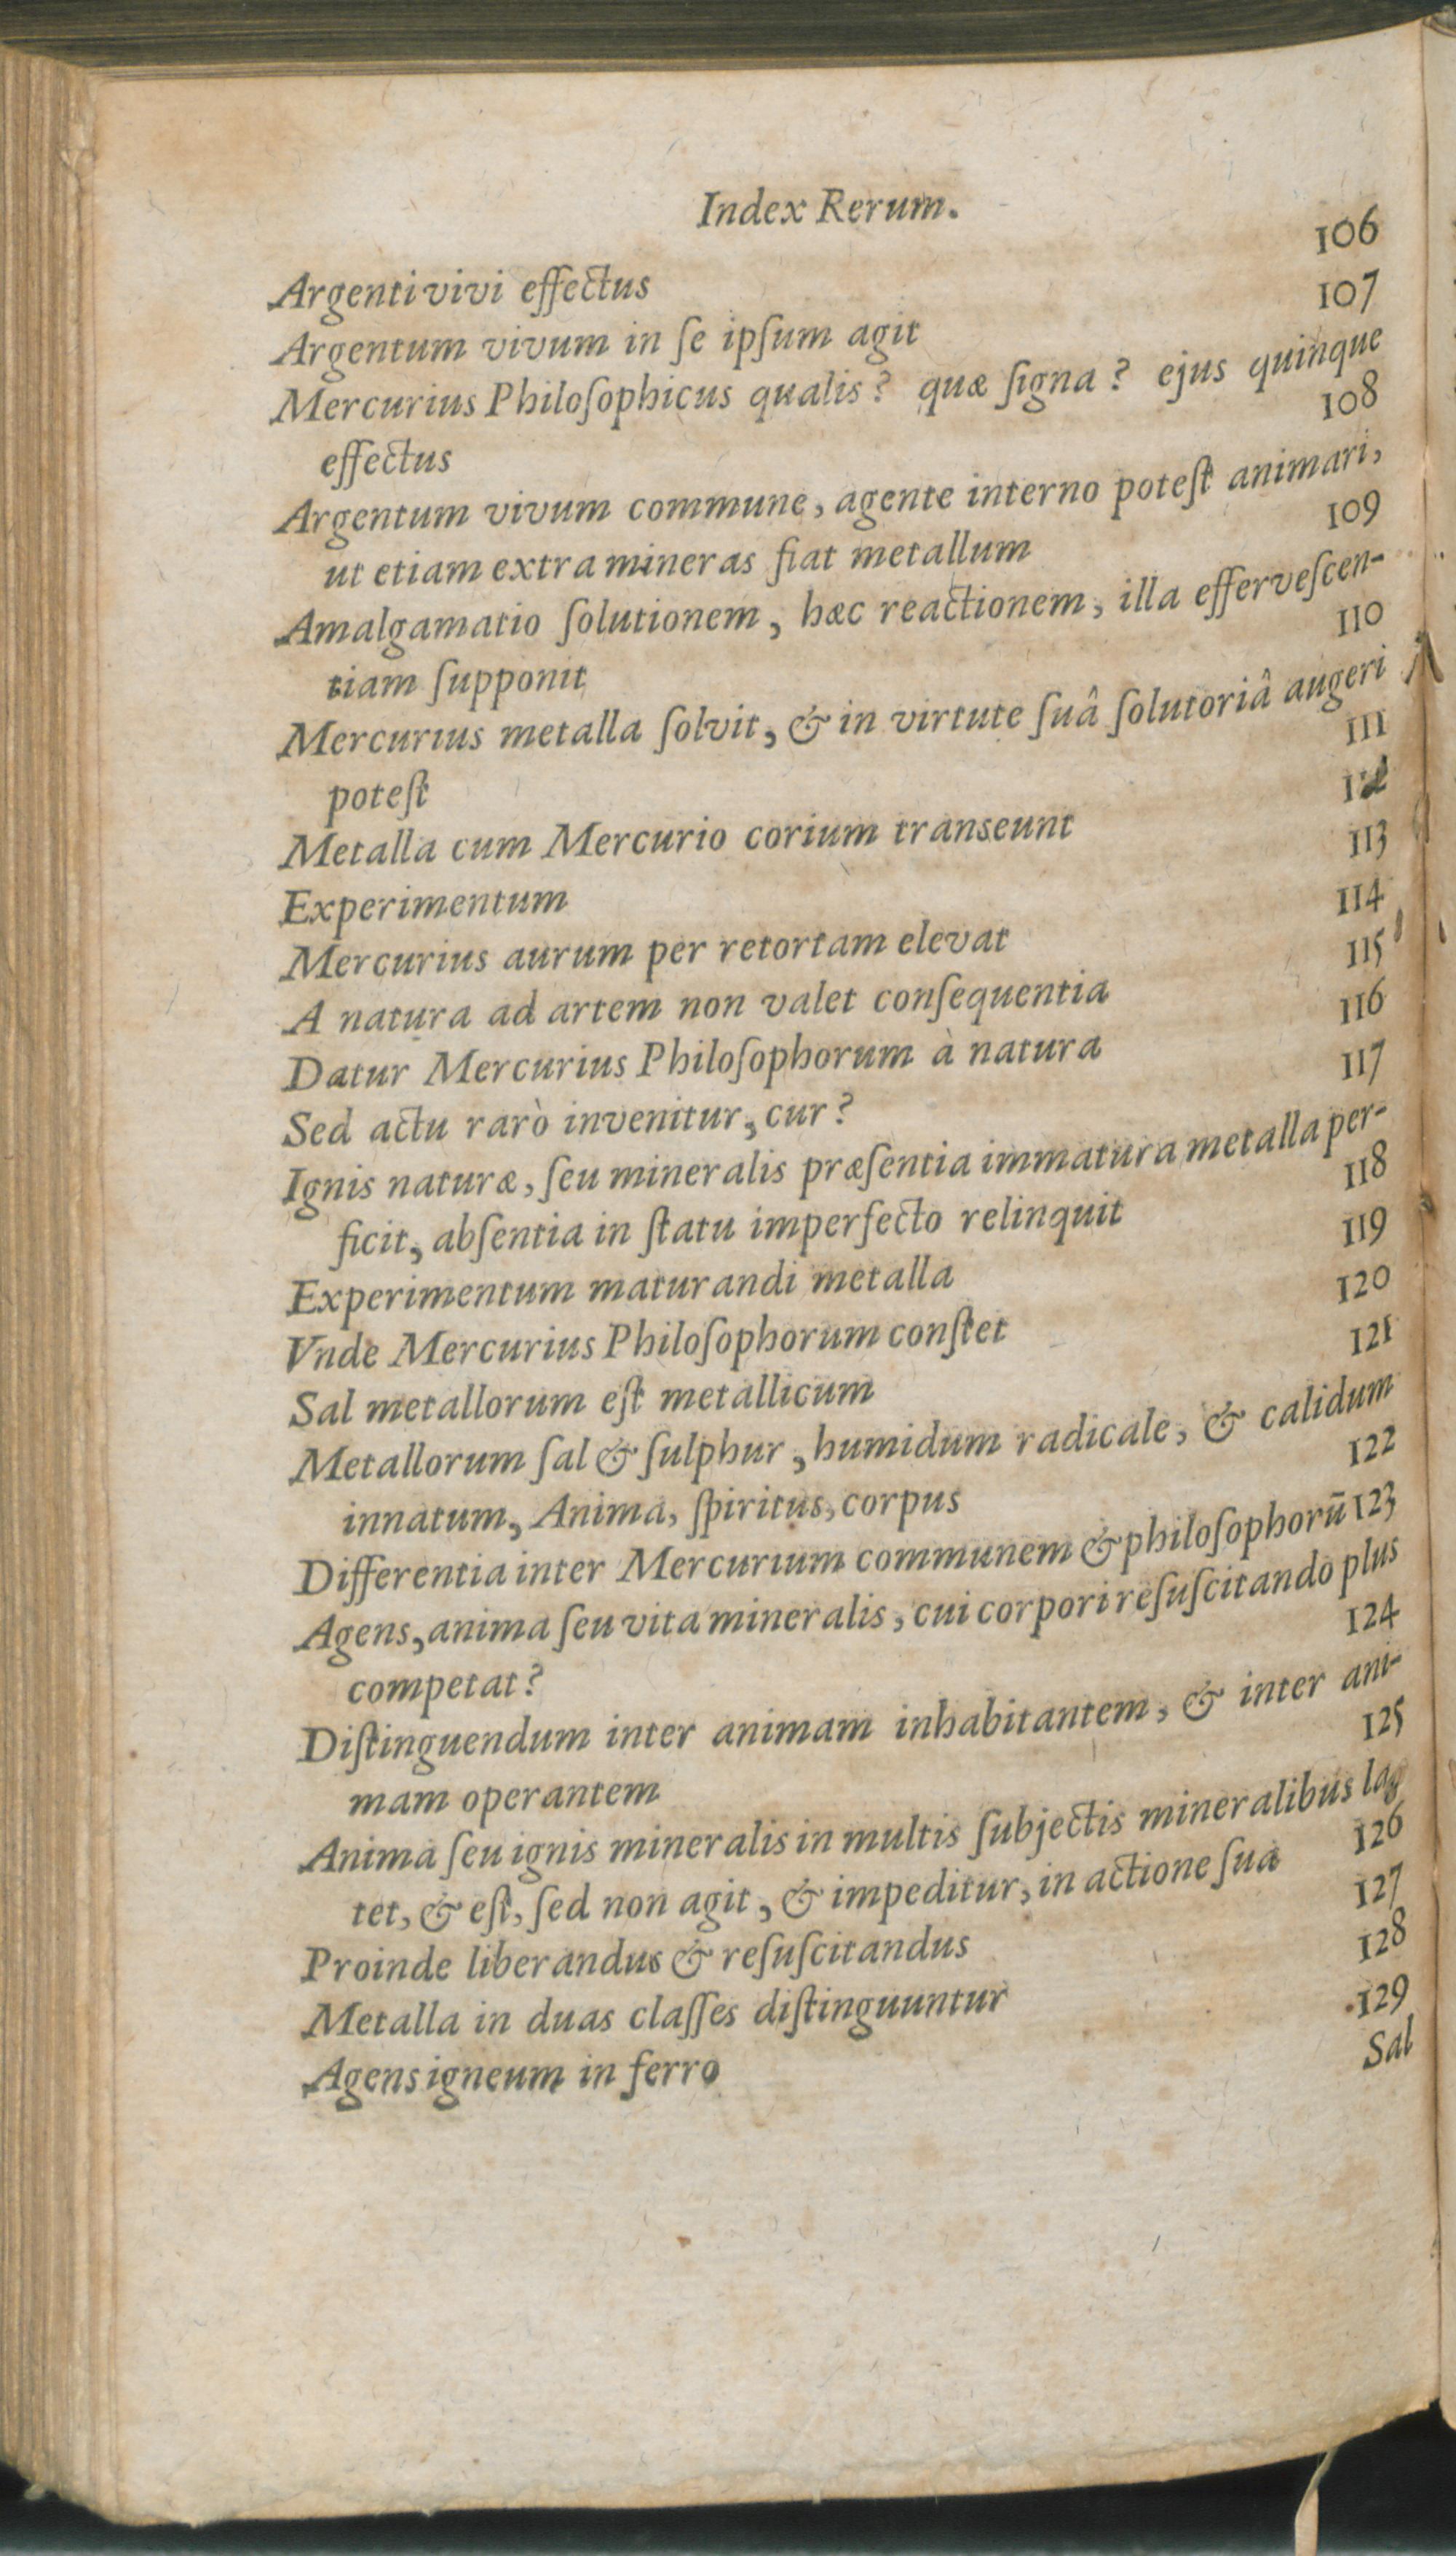 Index Rerum.
Argenti vivi effectus 106
Argentum vivum in ſe ipſum agit 107
Mercurius Philoſophicus qualis? quæ ſigna? ejus quinque
effectus 108
Argentum vivum commune, agente interno poteſt animari,
ut etiam extra mineras fiat metallum 109
Amalgamatio ſolutionem, hæc reactionem, illa efferveſcen-
tiam ſupponit 110
Mercurius metalla ſolvit, & in virtute ſuâ ſolutoriâ augeri
poteſt 111
Metalla cum Mercurio corium transeunt
Experimentum 113
Mercurius aurum per retortam elevat 114
A natura ad artem non valet conſequentia 115
Datur Mercurius Philoſophorum à natura 116
Sed actu rarò invenitur, cur? 117
Ignis naturæ, ſeu mineralis præſentia immatura metalla per-
ficit, abſentia in ſtatu imperfecto relinquit 118
Experimentum maturandi metalla 119
Vnde Mercurius Philoſophorum conſtet 120
Sal metallorum eſt metallicum 121
Metallorum ſal & ſulphur, humidum radicale, & calidum
innatum, Anima, ſpiritus, corpus 122
Differentia inter Mercurium communem & philoſophorū 123
Agens, anima ſeu vita mineralis, cui corpori reſuſcitando plus
competat? 124
Diſtinguendum inter animam inhabitantem, & inter ani-
mam operantem 125
Anima ſeu ignis mineralis in multis ſubjectis mineralibus la-
tet, & eſt, ſed non agit, & impeditur, in actione ſua 126
Proinde liberandus & reſuſcitandus 127
Metalla in duas claſſes diſtinguuntur 128
Agens igneum in ferro 129
Sal